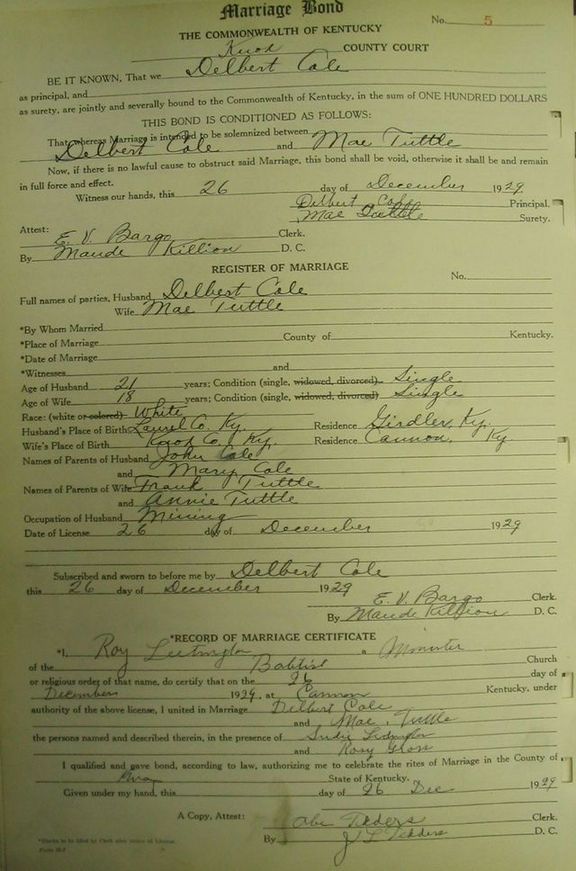 Marriage Bond
No. 5
THE COMMONWEALTH OF KENTUCKY
Knox COUNTY COURT
BE IT KNOWN, That we Delbert Cole
as principal, and
as surety, are jointly and severally bound to the Commonwealth of Kentucky, in the sum of ONE HUNDRED DOLLARS
THIS BOND IS CONDITIONED AS FOLLOWS:
That, whereas Marriage is intended to be solemnized between
Delbert Cole and Mae Tuttle
Now, if there is no lawful cause to obstruct said Marriage, this bond shall be void, otherwise it shall be and remain
in full force and effect.
Witness our hands, this 26 day of December 1929
Delbert Cole Principal.
Mae Tuttle Surety.
Attest: E. V. Bargo Clerk.
By Maude Killion D. C.
REGISTER OF MARRIAGE
No.
Full names of parties, Husband Delbert Cole
Wife Mae Tuttle
*By Whom Married
*Place of Marriage County of Kentucky.
*Date of Marriage
*Witnesses and
Age of Husband 21 years; Condition (single, widowed, divorced) Single
Age of Wife 18 years; Condition (single, widowed, divorced) Single
Race: (white or colored) White
Husband's Place of Birth Laurel Co. Ky. Residence Girdler, Ky.
Wife's Place of Birth Knox Co. Ky. Residence Cannon, Ky
Names of Parents of Husband John Cole
and Mary Cole
Names of Parents of Wife Frank Tuttle
and Annie Tuttle
Occupation of Husband Mining
Date of License 26 day of December 1929
Subscribed and sworn to before me by Delbert Cole
this 26 day of December 1929
E. V. Bargo Clerk.
By Maude Killion D. C.
*RECORD OF MARRIAGE CERTIFICATE
*I, Roy a Minister
of the Babtist Church
or religious order of that name, do certify that on the 26 day of
December 1929, at Cannon Kentucky, under
authority of the above license, I united in Marriage Delbert Cole
and Mae Tuttle
the persons named and described therein, in the presence of
and
I qualified and gave bond, according to law, authorizing me to celebrate the rites of Marriage in the County of
Knox State of Kentucky.
Given under my hand, this day of 26 Dec 1929
A Copy, Attest: Clerk.
By D. C.